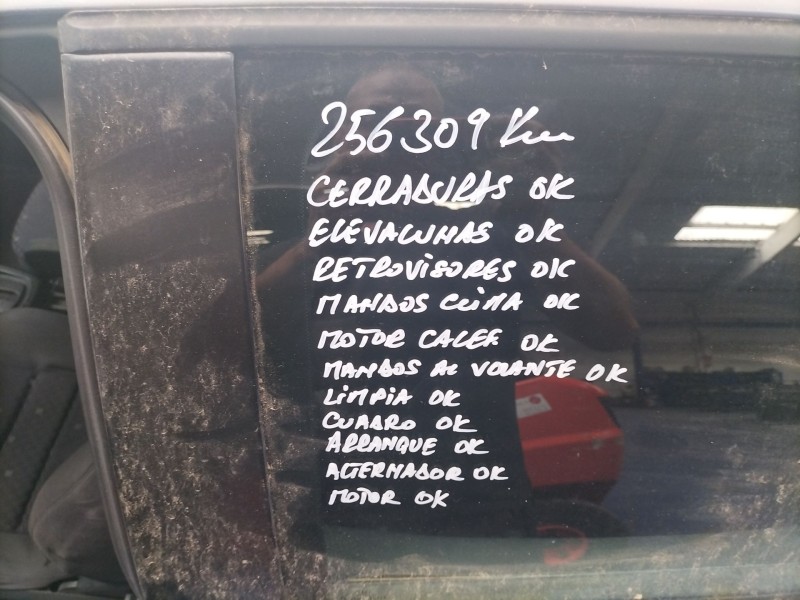 256309 Km
CERRADURAS OK
ELEVALUNAS OK
RETROVISORES OK
MANDOS CLIMA OK
MOTOR CALEF OK
MANDOS AL VOLANTE OK
LIMPIA OK
CUADRO OK
ARRANQUE OK
ALTERNADOR OK
MOTOR OK